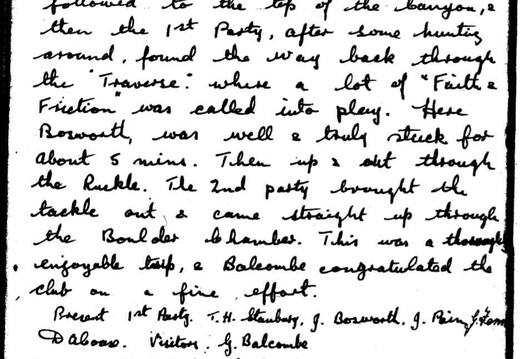 followed to the top of the canyon, &
then the 1st Party, after some hunting
around, found the way back through
the "Traverse". where a lot of "Faith &
Friction" was called into play. Here
Bosworth, was well & truly stuck for
about 5 mins. Then up & out through
the Ruckle. The 2nd party brought the
tackle out & came straight up through
the Boulder Chamber. This was a thoroughly
enjoyable trip, & Balcombe congratulated the
club on a fine effort.
Present 1st Party. T.H. Stanbury, J. Bosworth, J.
D above. Visitors. G. Balcombe